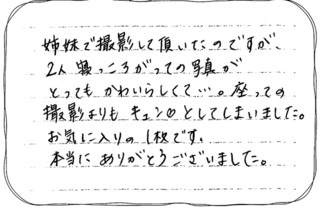 姉妹で撮影して頂いたのですが、
2人寝っころがっての写真が
とってもかわいらしくて…。座っての
撮影よりもキュンめとしてしまいました。
お気に入りの1枚です。
本当にありがとうございました。